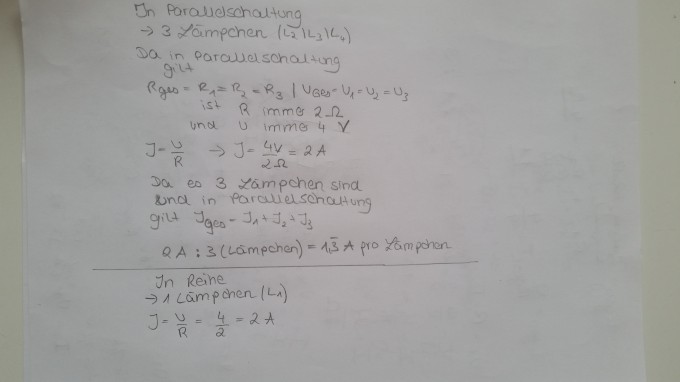 In Parallelschaltung
→ 3 Lämpchen (L2/L3/L4)
Da in Parallelschaltung
gilt
Rges = R1 = R2 = R3 / Uges = U1 = U2 = U3
ist R imme 2 Ω
und U imme 4 V
I = U/R → I = 4V/2Ω = 2 A
Da es 3 Lämpchen sind
und in Parallelschaltung
gilt Iges = I1 + I2 + I3
2 A : 3 (Lämpchen) = 1,3̅ A pro Lämpchen
In Reihe
→ 1 Lämpchen (L1)
I = U/R = 4/2 = 2 A